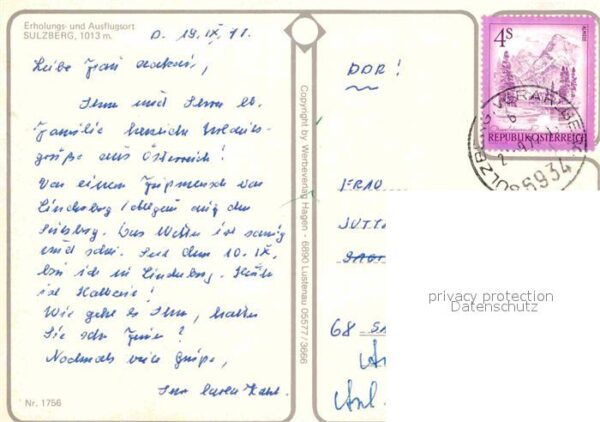 Erholungs- und Ausflugsort
SULZBERG, 1013 m.
D. 19.IX.77.
Liebe Frau
Ihnen und Ihrer lb.
Familie herzliche Urlaubs-
grüße aus Österreich!
Von einem
Lindenberg / Allgäu auf den
Sulzberg. Das Wetter ist sonnig
und schön. Seit dem 10. IX.
bin ich in Lindenberg. Heute
ist Halbzeit!
Wie geht es Ihnen, hatten
Sie schon Ferien?
Nochmals viele Grüße,
Ihre
Nr. 1756
Copyright by Werbeverlag Hagen - 6890 Lustenau 05577/3666
4S
REPUBLIK ÖSTERREICH
6934
DDR!
FRAU
JUTTA
68
privacy protection
Datenschutz